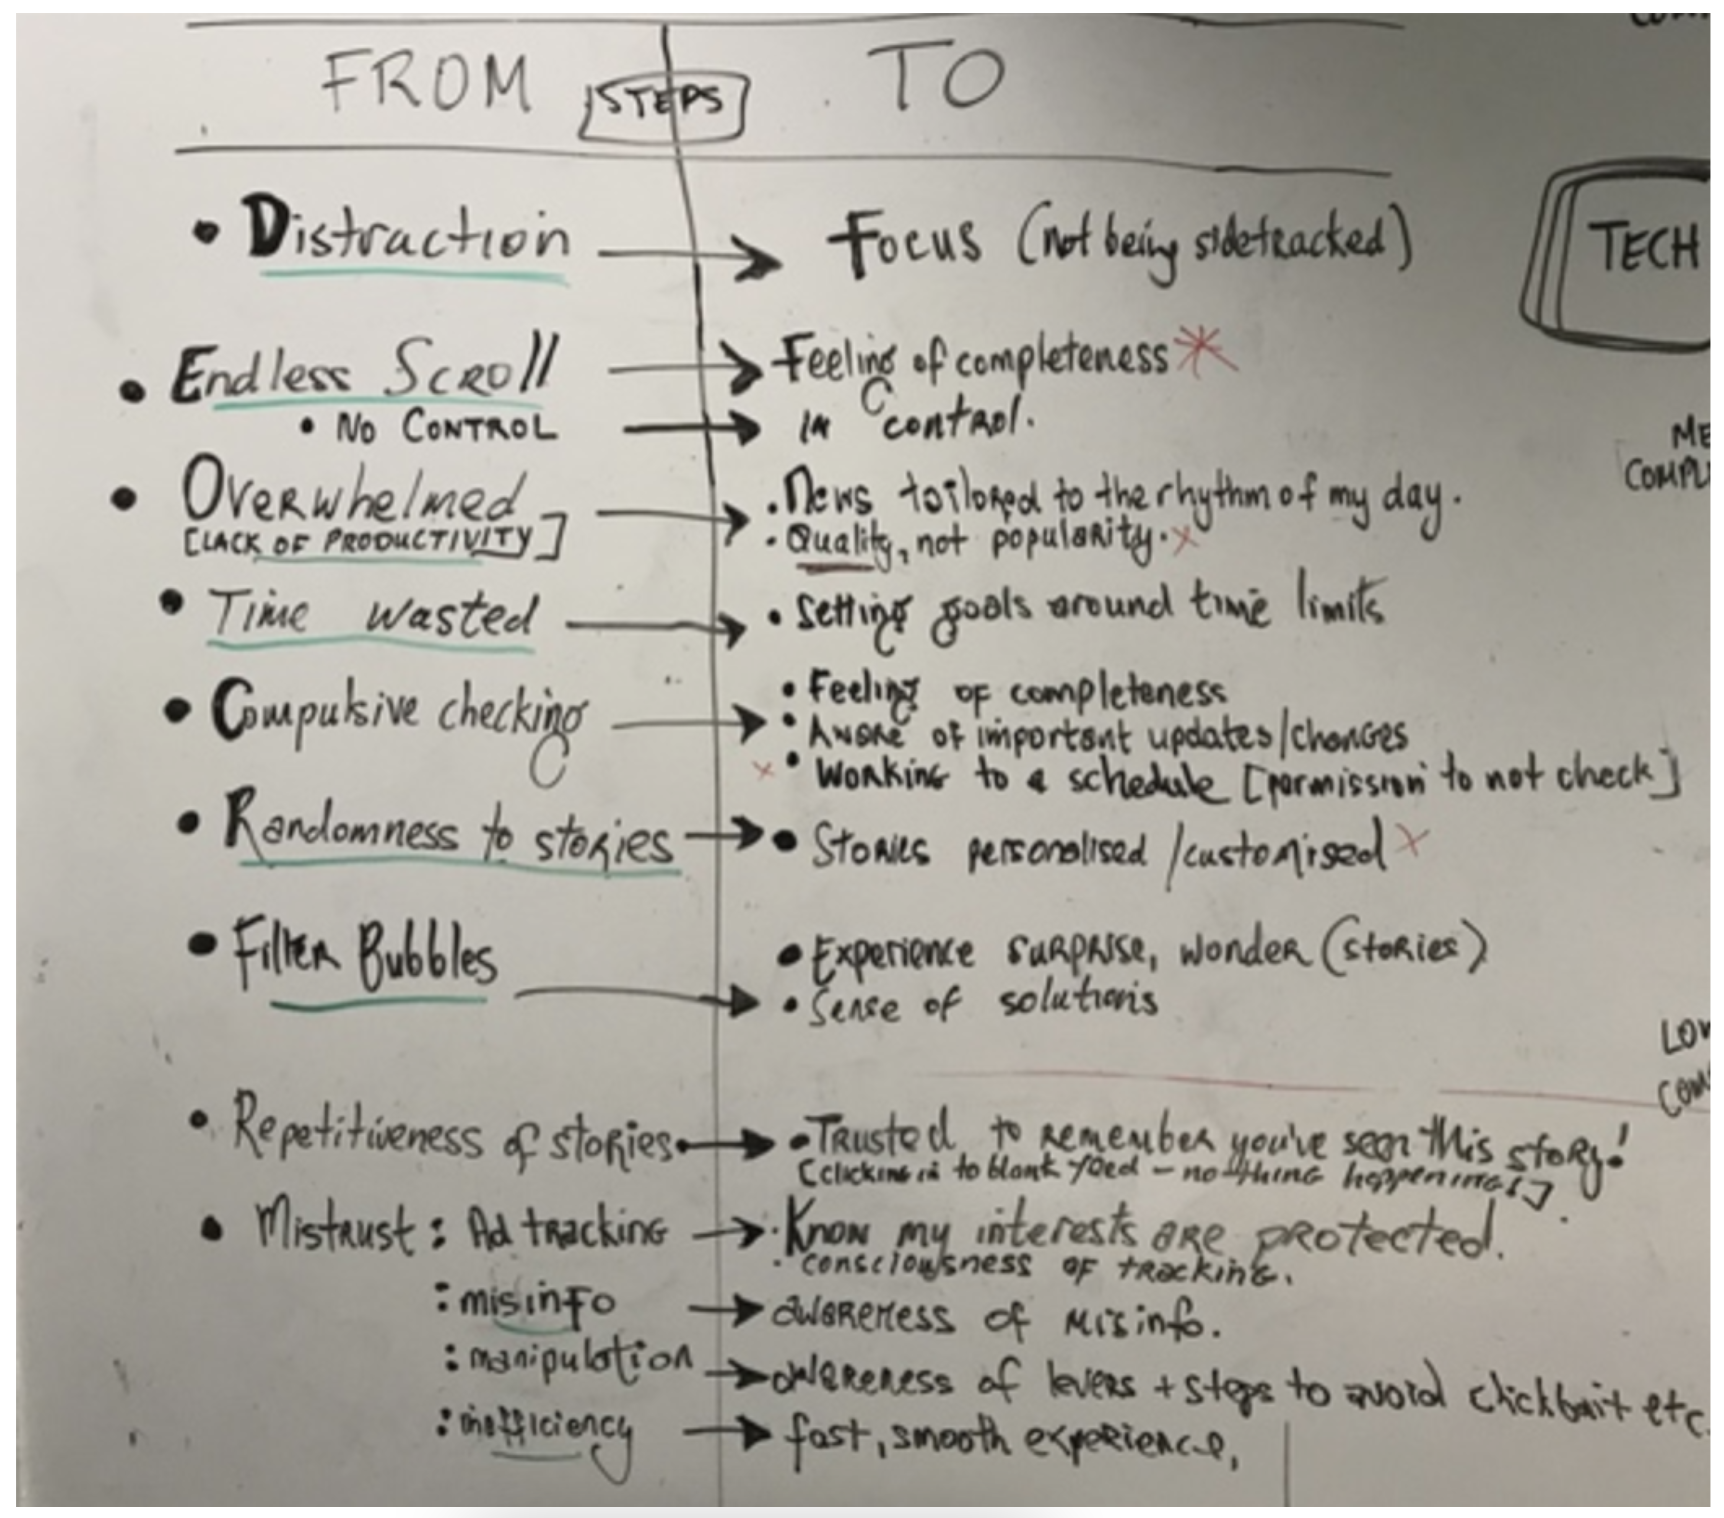 FROM STEPS TO
• Distraction → Focus (not being sidetracked)
TECH
• Endless Scroll → Feeling of completeness *
• No Control → in control.
• Overwhelmed → • News tailored to the rhythm of my day.
[Lack of Productivity] • Quality, not popularity. x
• Time wasted → • Setting goals around time limits
• Compulsive checking → • Feeling of completeness
• Aware of important updates/changes
x • Working to a schedule [permission to not check]
• Randomness to stories → • Stories personalised /customised x
• Filter Bubbles → • Experience surprise, wonder (stories)
• Sense of solutions
• Repetitiveness of stories → • Trusted to remember you've seen this story!
[clicking in to blank feed - nothing happening!]
• Mistrust : Ad tracking → • Know my interests are protected.
• consciousness of tracking.
: misinfo → awareness of misinfo.
: manipulation → awareness of levers + steps to avoid clickbait etc.
: inefficiency → fast, smooth experience,